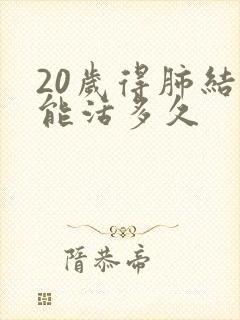 20歲得肺結
能活多久
隋恭帝